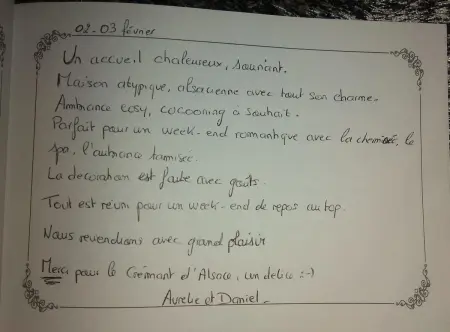 02.03 février
Un accueil chaleureux, souriant.
Maison atypique, alsacienne avec tout son charme.
Ambiance cosy, cocooning à souhait.
Parfait pour un week-end romantique avec la cheminée, le
spa, l'ambiance tamisée.
La decoration est faite avec goûts.
Tout est réuni pour un week-end de repos au top.
Nous reviendrons avec grand plaisir
Merci pour le Crémant d'Alsace, un delice :-)
Aurelie et Daniel.